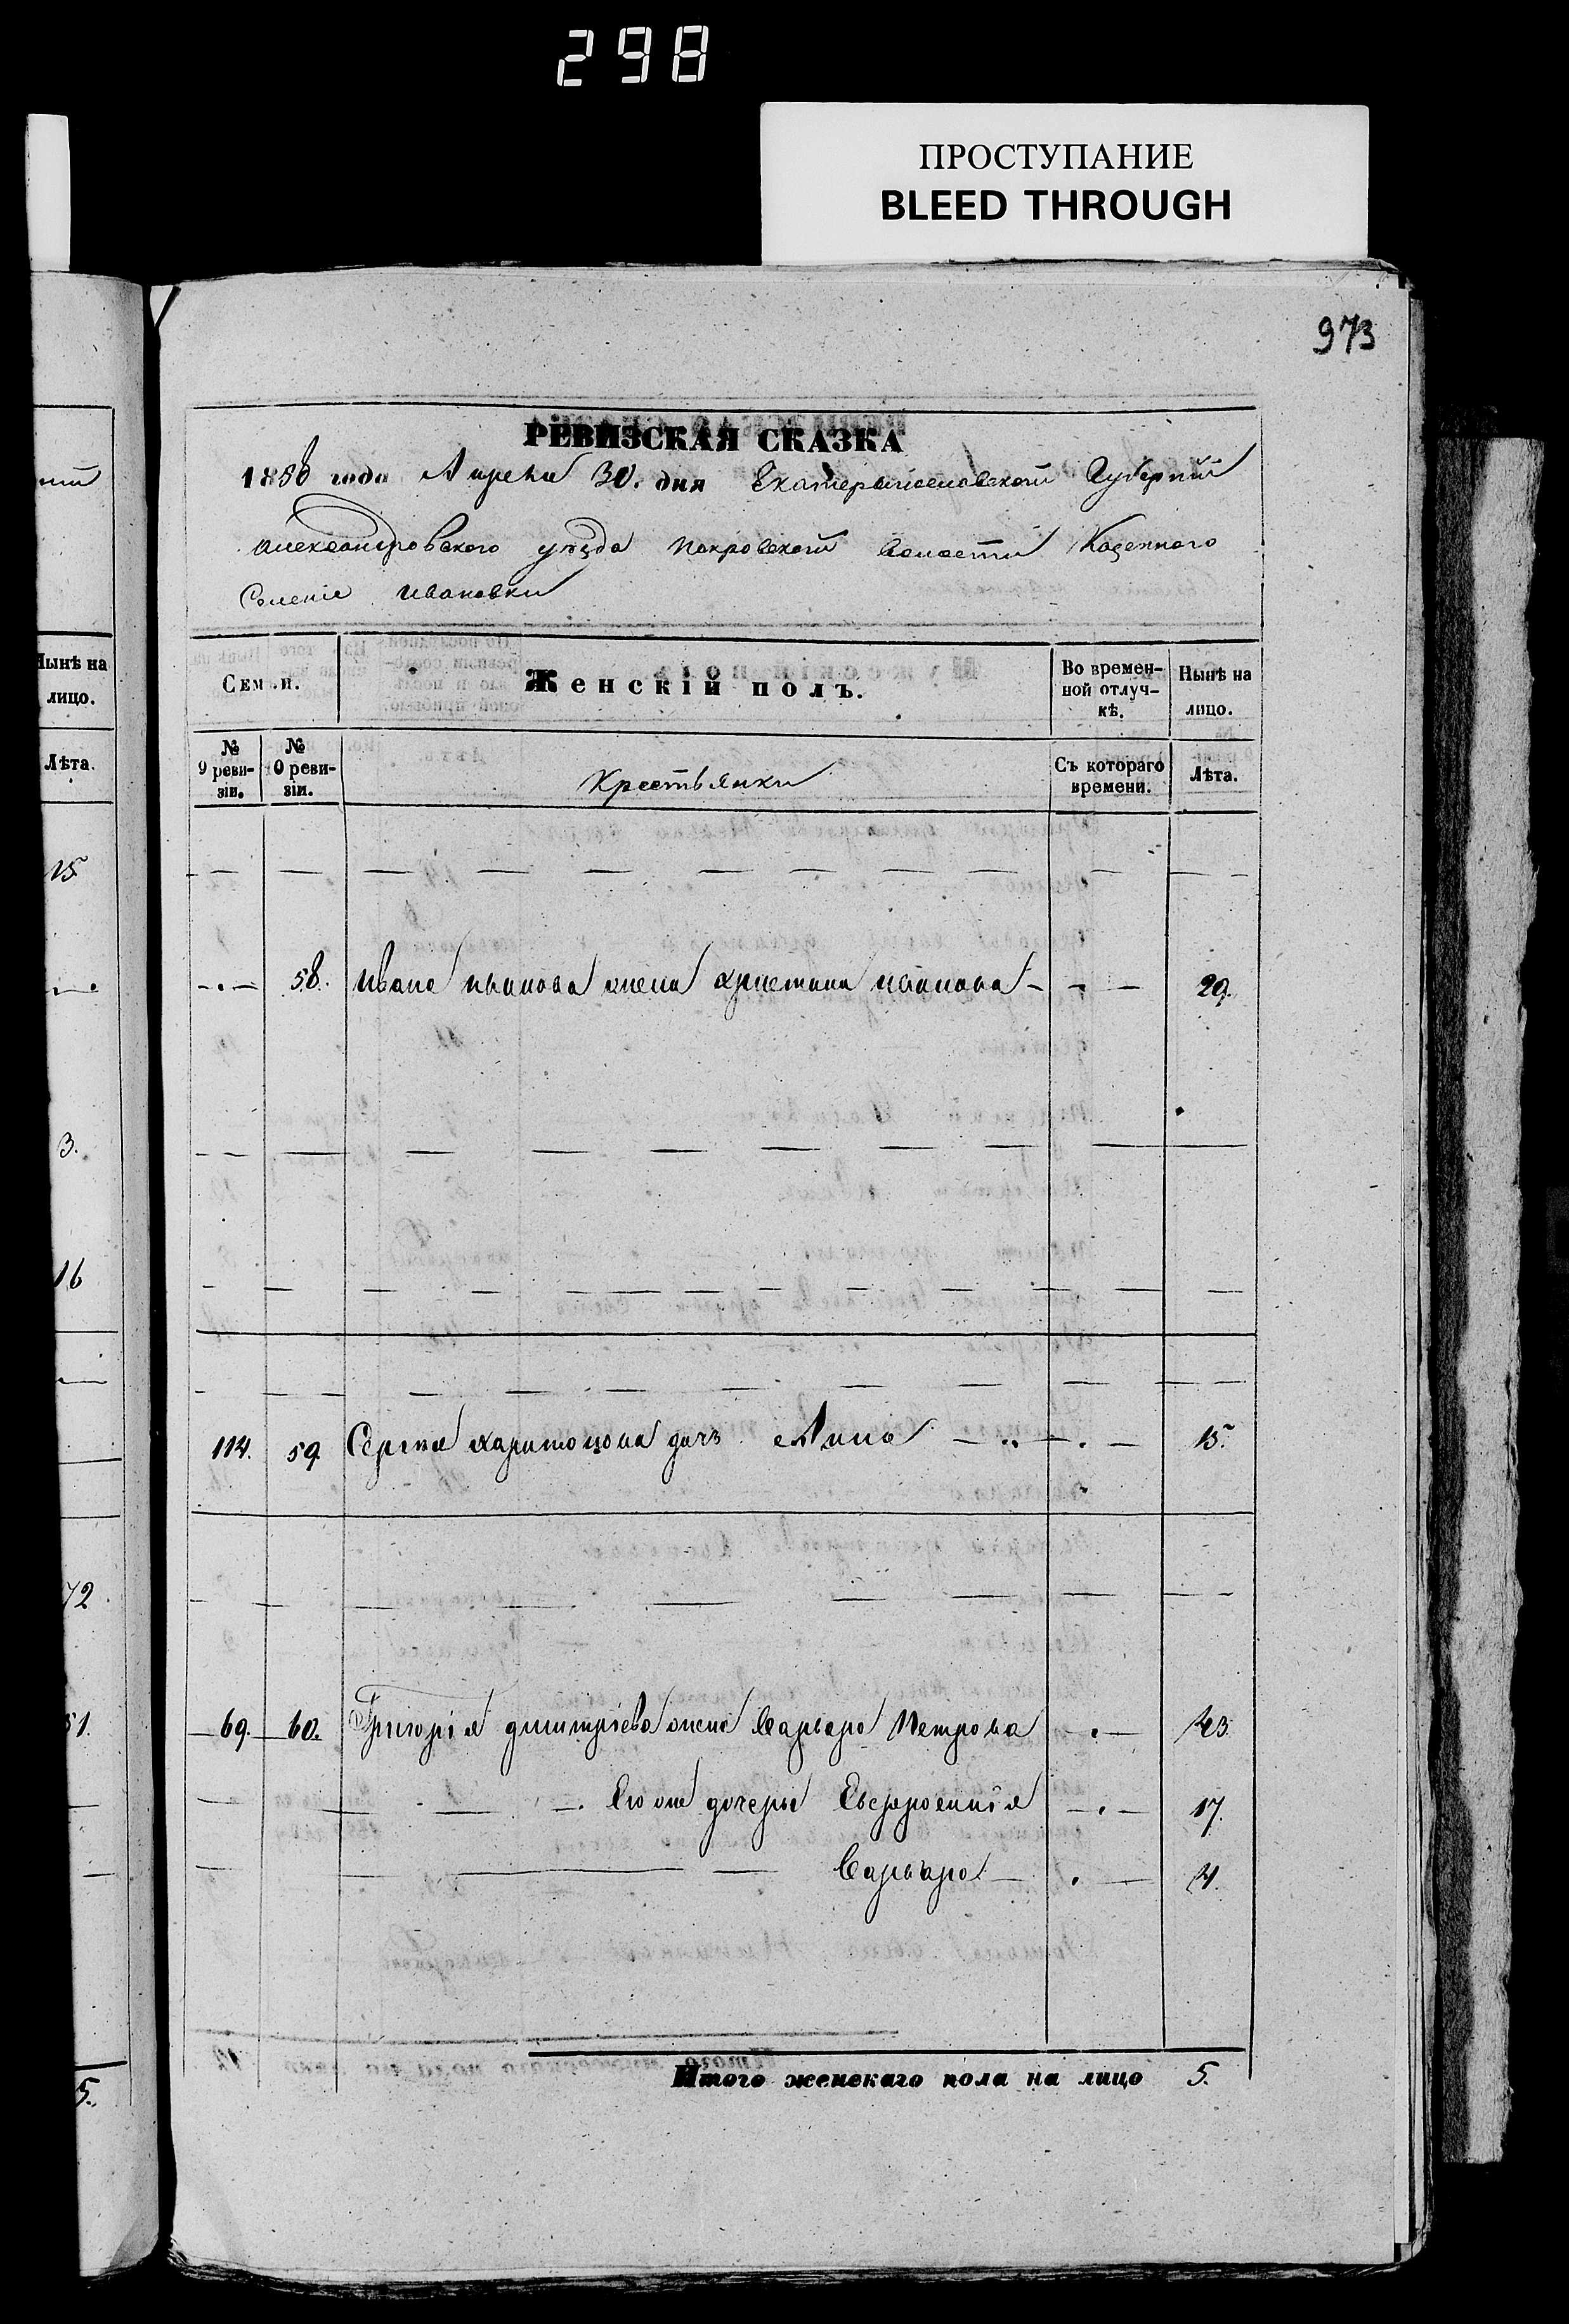 298
ПРОСТУПАНИЕ
BLEED THROUGH
973
РЕВИЗСКАЯ СКАЗКА
1858 года Апреля 30. дня Екатеринославской Губерніи
Александровского уезда Покровской волости Казенного
Селенія Ивановки
Нынѣ на лицо.
Лѣта.
15
3.
16
72
51.
5.
Семьи.
Женскій полъ.
Во временной отлучкѣ.
Нынѣ на лицо.
№ 9 ревизіи.
№ 10 ревизіи.
Крестьянки
Съ котораго времени.
Лѣта.
58. Ивана иванова жена христина иванова 29.
114. 59. Сергея харитонова дочь Анна 15.
69. 60. Григорія дмитріева жена Варвара Петрова 43.
Его же дочери Евфросинія 17.
Варвара 4.
Итого женскаго пола на лицо 5.